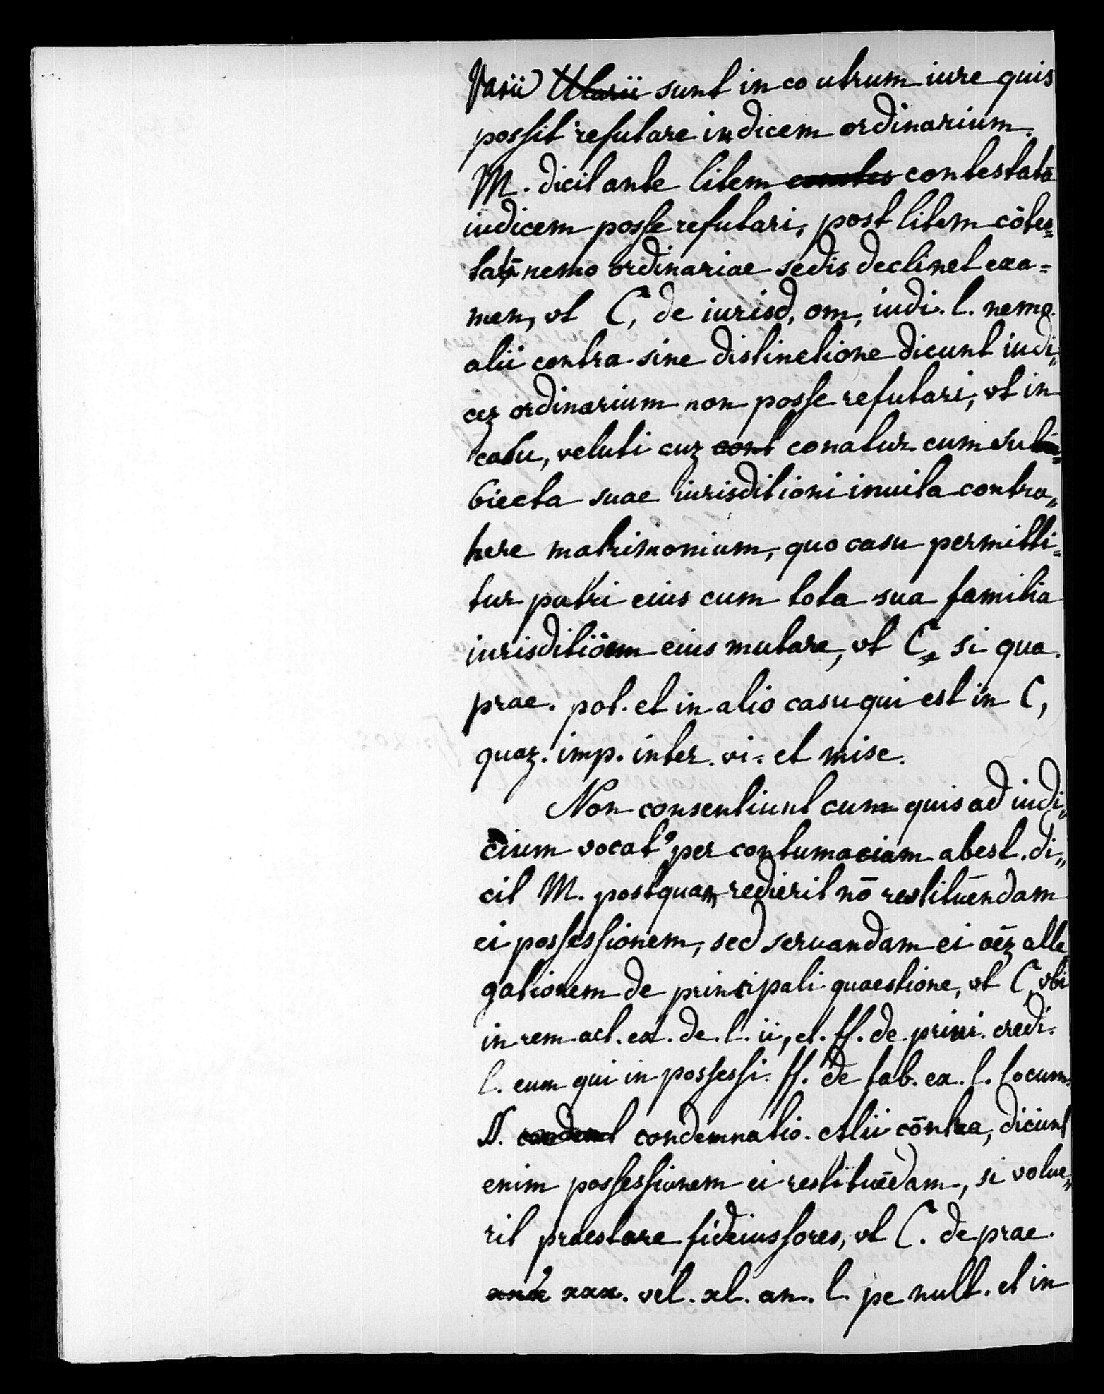 Varii Utarii sunt in eo utrum iure quis
possit refutare iudicem ordinarium.
M. dicit ante litem contes contestatā
iudicem posse refutari, post litem cōtes=
tatā nemo ordinariae sedis declinet exa=
men, vt C, de iurisd, om, iudi. l. nemo.
alii contra sine distinctione dicunt iudi„
cez ordinarium non posse refutari, vt in
casu, veluti cuz cont conatur cum su
biecta suae iurisditioni inuita contra„
here matrimonium, quo casu permitti=
tur patri eius cum tota sua familia
iurisditiōem eius mutare, vt C, si qua.
prae. pot. et in alio casu qui est in C,
quaz. imp. inter. vi= et mise.
Non consentiunt cum quis ad iudi„
cium vocat9 per contumaciam abest. di„
cit M. postquam redierit nō restituēndam
ei possessionem, sed seruandam ei oēz alle
gationem de principali quaestione, vt C, vbi
in rem act. ex. de. l. ii, et. ff. de priui. credi=
l. eum qui in possessi. ff. de tab. ex. l. locum.
§. condent condemnatio. Alii cōntra, dicunt
enim possessionem ei restituēdam, si volue„
rit praestare fideiussores, vt C. de prae.
xxx. vel. xl. an. l. pe nult. et in